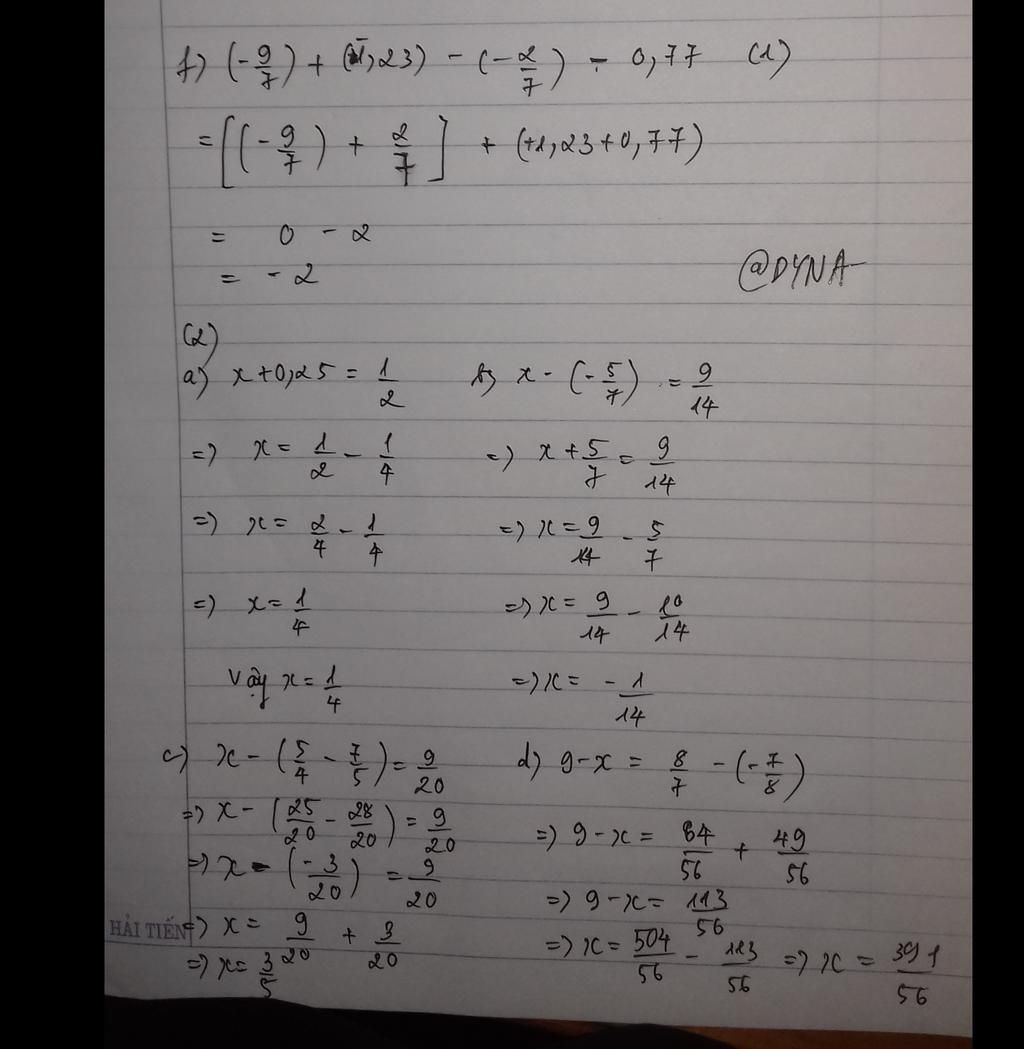 f) (-9/7) + (-1,23) - (-2/7) - 0,77 (1)
= [(-9/7) + 2/7] + (+1,23+0,77)
= 0 - 2
= - 2
@DYNA
(2)
a) x+0,25 = 1/2
=) x = 1/2 - 1/4
=) x = 2/4 - 1/4
=) x = 1/4
Vậy x = 1/4
b) x - (-5/7) = 9/14
=) x + 5/7 = 9/14
=) x = 9/14 - 5/7
=) x = 9/14 - 10/14
=) x = -1/14
c) x - (5/4 - 7/5) = 9/20
=) x - (25/20 - 28/20) = 9/20
=) x - (-3/20) = 9/20
=) x = 9/20 + 3/20
=) x = 3/5
d) 9-x = 8/7 - (-7/8)
=) 9-x = 64/56 + 49/56
=) 9-x = 113/56
=) x = 504/56 - 113/56 =) x = 391/56
HẢI TIẾN